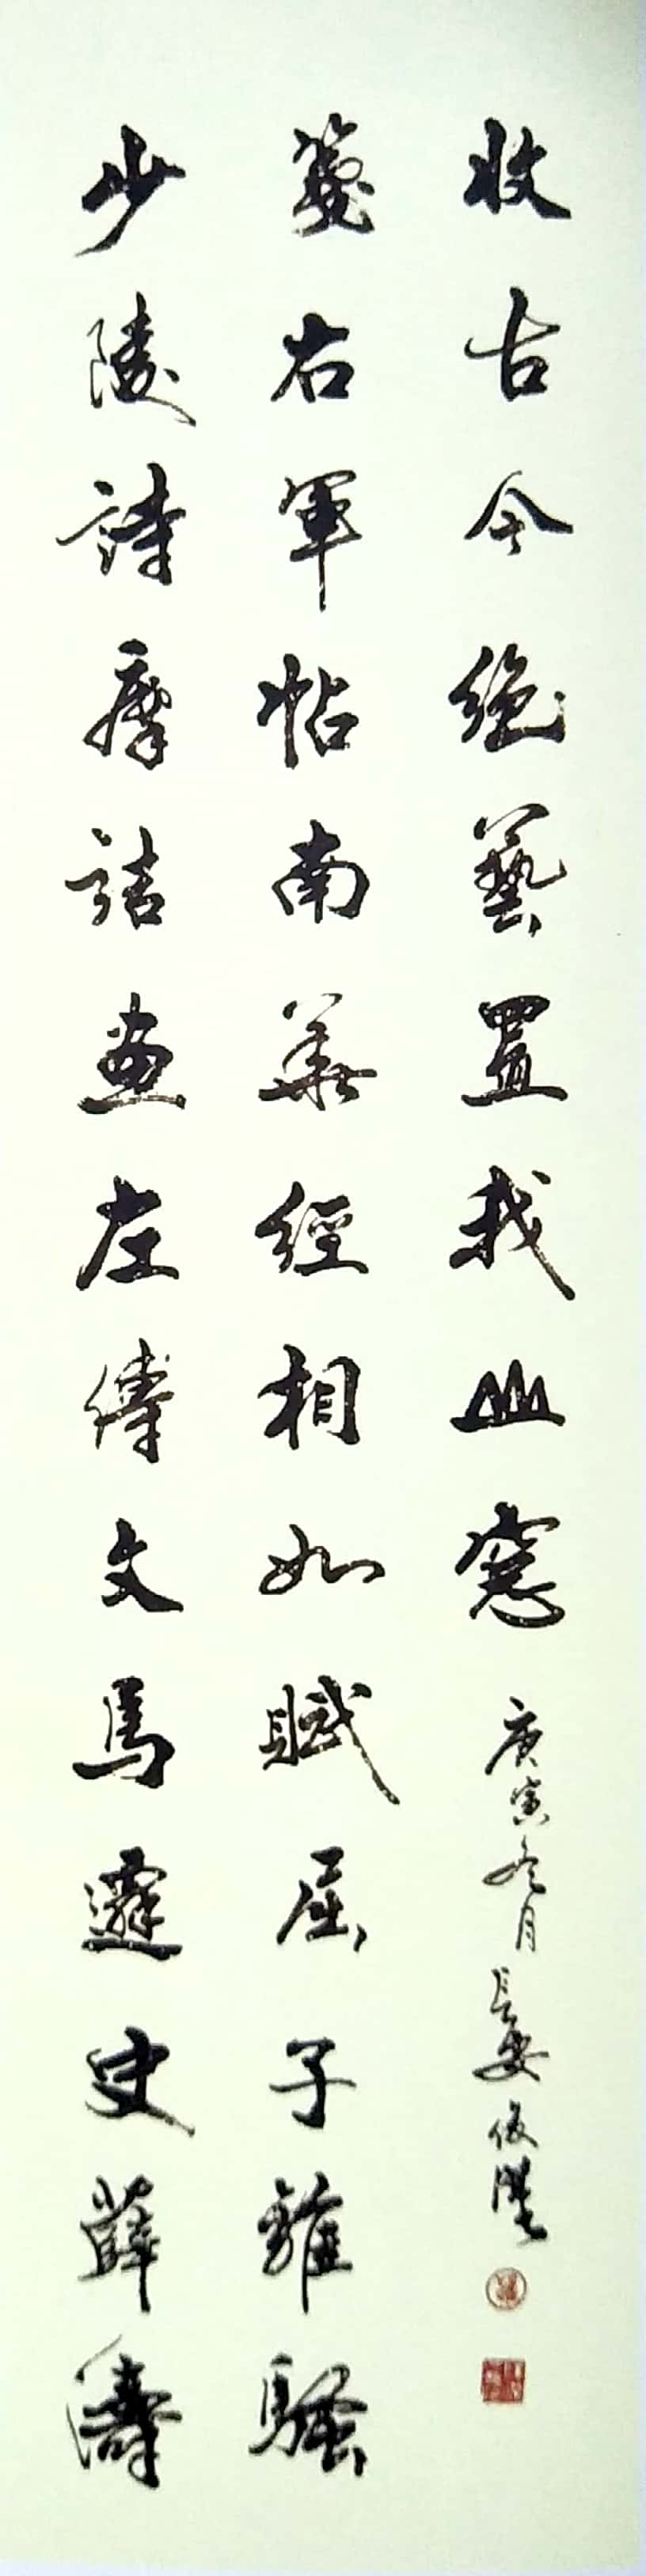 少陵詩摩詰畫左傳文馬遷史薛濤
箋右軍帖南華經相如賦屈子離騷
收古今絶藝置我山窻
庚寅冬月長安